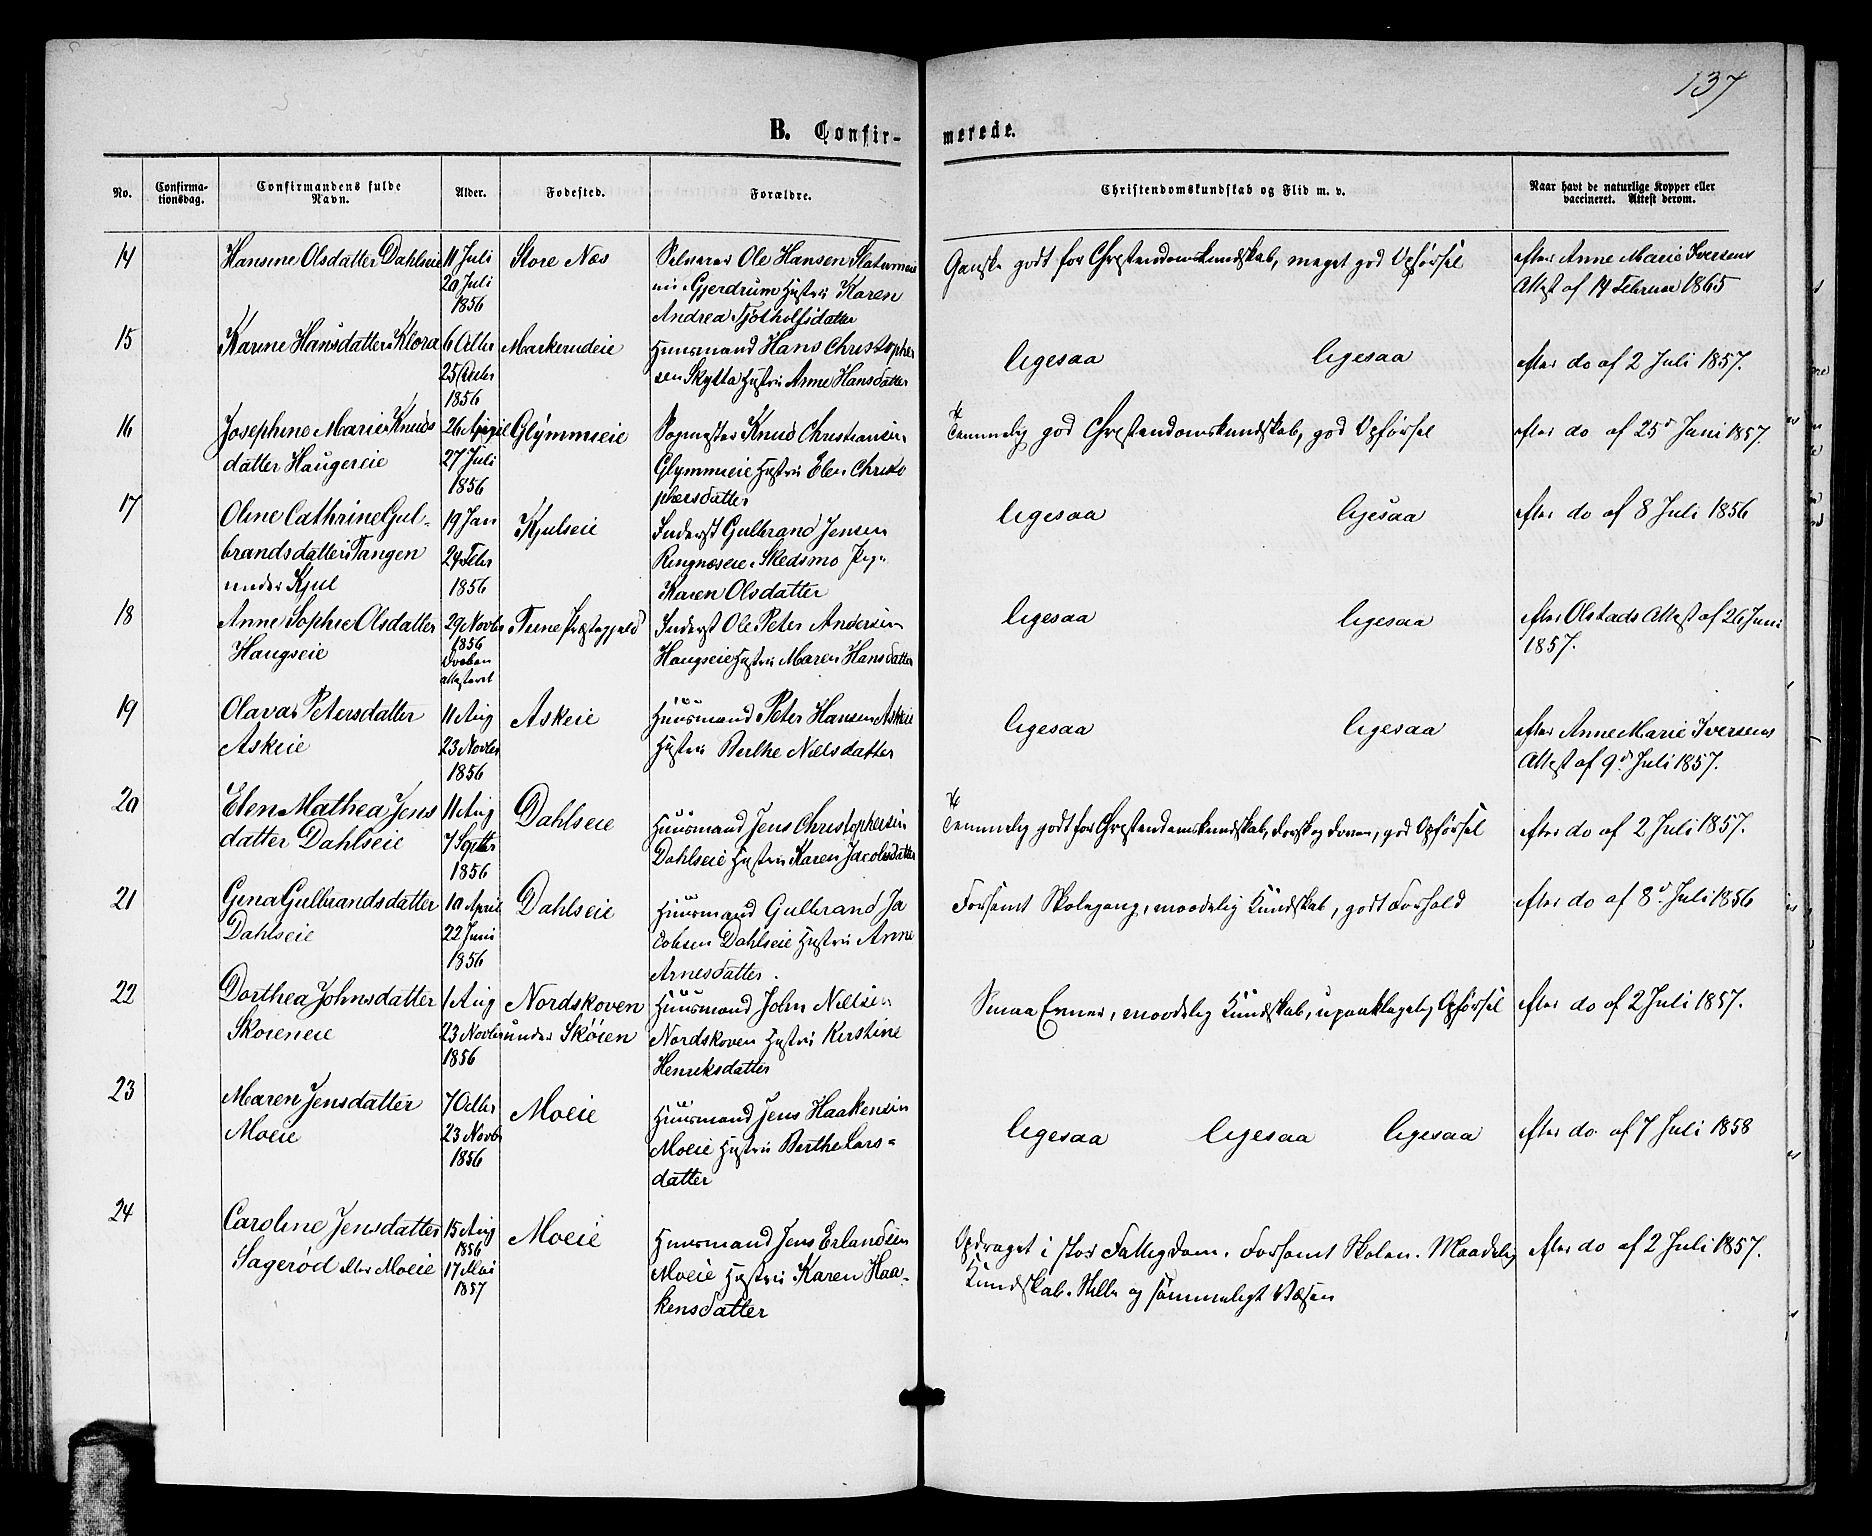 137
B. Confir-
merede.
No.
Confirma-
tionsdag.
Confirmandens fulde
Navn.
Alder.
Fødested.
Forældre.
Christendomskundskab og Flid m. v.
Naar havt de naturlige Kopper eller
vaccineret. Attest derom.
14
Hansine Olsdatter Dahlseie
11 Juli
20 Juli
1856
Store Næs
Ole Hansen
Gjerdrum Hustru Karen
Andrea
Ganske godt for Christendomskundskab, meget god Opførsel
efter Anne Marie Iversens
Attest af 14 Februar 1865
15
Karine Hansdatter Klora
6 Octbr
25 Octbr
1856
Markerudeie
Huusmand Hans Christopher
sen Skytta Hustru Anne Hansdatter
ligesaa ligesaa
efter do af 2 Juli 1857.
16
Josephine Marie Knuds
datter Haugereie
26 April
27 Juli
1856
Glymmeie
Knud Christiansen
Glymmeie Hustru Elen Christo
phersdatter
Temmelig god Christendomskundskab, god Opførsel
efter do af 25d Juni 1857.
17
Oline Cathrine Gul-
brandsdatter Tangen
under Kjul
19 Jan
24 Febr
1856
Kjulseie
Inderst Gulbrand Jensen
Ringnæseie i Skedsmo Pige
Karen Olsdatter
ligesaa ligesaa
efter do af 8 Juli 1856
18
Anne Sophie Olsdatter
Haugseie
29 Novbr
1856
Daaben
attesteret
Fæne Præstegjeld
Inderst Ole Peter Andersen
Haugseie Hustru Maren Hansdatter
ligesaa ligesaa
efter Olstads Attest af 26 Juni
1857.
19
Olava Petersdatter
Askeie
11 Aug
23 Novbr
1856
Askeie
Huusmand Peter Hansen Askeie
Hustru Berthe Nielsdatter
ligesaa ligesaa
efter Anne Marie Iversens
Attest af 9d Juli 1857.
20
Elen Mathea Jens
datter Dahlseie
11 Aug
7 Septbr
1856
Dahlseie
Huusmand Jens Christophersen
Dahlseie Hustru Karen Jacobsdatter
Temmelig godt for Christendomskundskab, god Opførsel
efter do af 2 Juli 1857.
21
Gina Gulbrandsdatter
Dahlseie
10 April
22 Juni
1856
Dahlseie
Huusmand Gulbrand Ja
cobsen Dahlseie Hustru Anne
Arnesdatter.
Forsømt Skolegang, maadelig Kundskab, godt Forhold
efter do af 8d Juli 1856
22
Dorthea Johnsdatter
Skoieneie
1 Aug
23 Novbr
1856
Nordskoven
under Skøien
Huusmand John Nielsen
Nordskoven Hustru Kirstine
Henriksdatter
Smaa Evner, maadelig Kundskab, upaaklagelig Opførsel
efter do af 2 Juli 1857.
23
Maren Jensdatter
Moeie
7 Octbr
23 Novbr
1856
Moeie
Huusmand Jens Haakensen
Moeie Hustru Berthe Lars-
datter
ligesaa ligesaa ligesaa
efter do af 7 Juli 1858
24
Caroline Jensdatter
Sagerød eller Moeie
15 Aug
1856
17 Mai
1857
Moeie
Huusmand Jens Erlandsen
Moeie Hustru Karen Haa-
kensdatter
Opdraget i stor Fattigdom. Forsømt Skolen. Maadelig
Kundskab. Stille og sømmeligt Væsen
efter do af 2 Juli 1857.